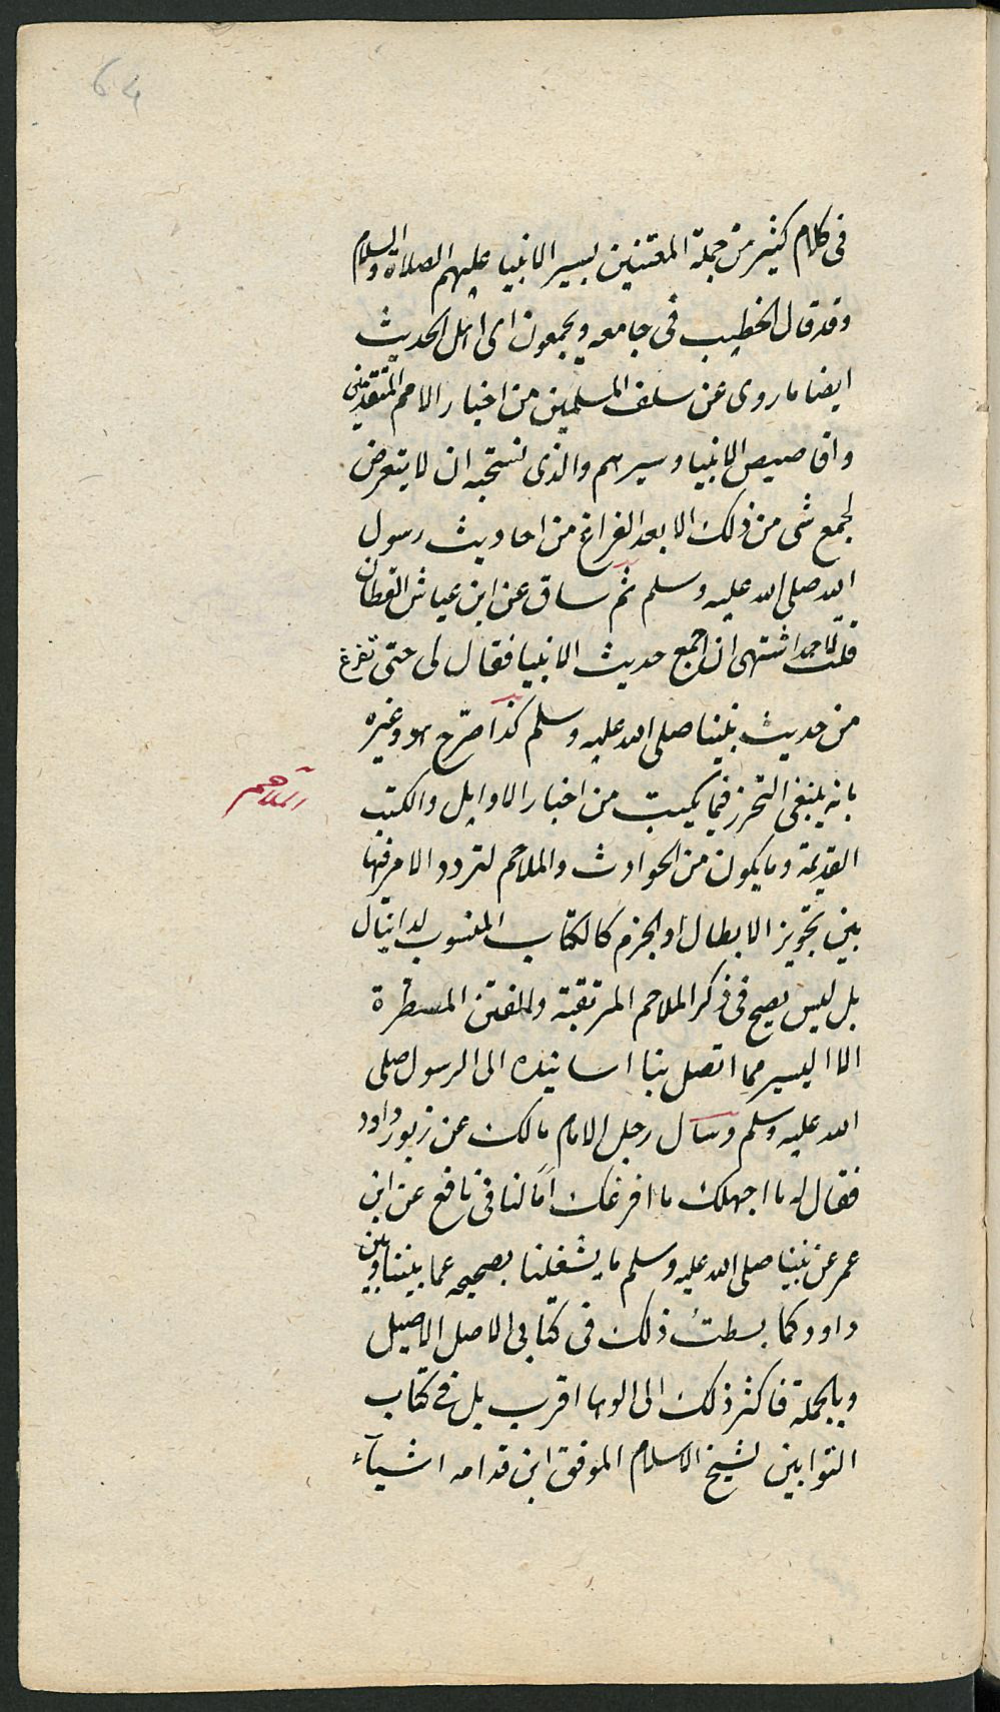 64
فى كلام كثير من جملة المعتنين بسير الانبيا عليهم الصلاة والسلام
وقد قال الخطيب فى جامعه ويجمعون اى اهل الحديث
ايضا ما روى عن سلف المسلمين من اخبار الامم المتقدمين
واقاصيص الانبيا وسيرهم والذى نستحبه ان لا يتعرض
لجمع شى من ذلك الا بعد الفراغ من احاديث رسول
الله صلى الله عليه وسلم ثم ساق عن ابن عياش القطان
قلت لاحمد اشتهى ان اجمع حديث الانبيا فقال لى حتى تفرغ
من حديث نبينا صلى الله عليه وسلم كذا صرح هو وغيره
بانه ينبغى التحرز فيما يكتب من اخبار الاوايل والكتب
الملاحم
القديمة وما يكون من الحوادث والملاحم لتردد الامر فيها
بين تجويز الابطال او الجزم كالكتاب المنسوب لدانيال
بل ليس يصح فى ذكر الملاحم المرتقبة والفتن المسطرة
الا اليسير مما اتصل بنا اسانيده الى الرسول صلى
الله عليه وسلم وسال رجل الامام مالك عن زبور داود
فقال له ما اجهلك ما افرغك اما لنا فى نافع عن ابن
عمر عن نبينا صلى الله عليه وسلم ما يشغلنا بصحيحه عما بيننا وبين
داود كما بسطت ذلك فى كتابى الاصل الاصيل
وبالجملة فاكثر ذلك الى الوها اقرب بل فى كتاب
التوابين لشيخ الاسلام الموفق ابن قدامه اشيآء